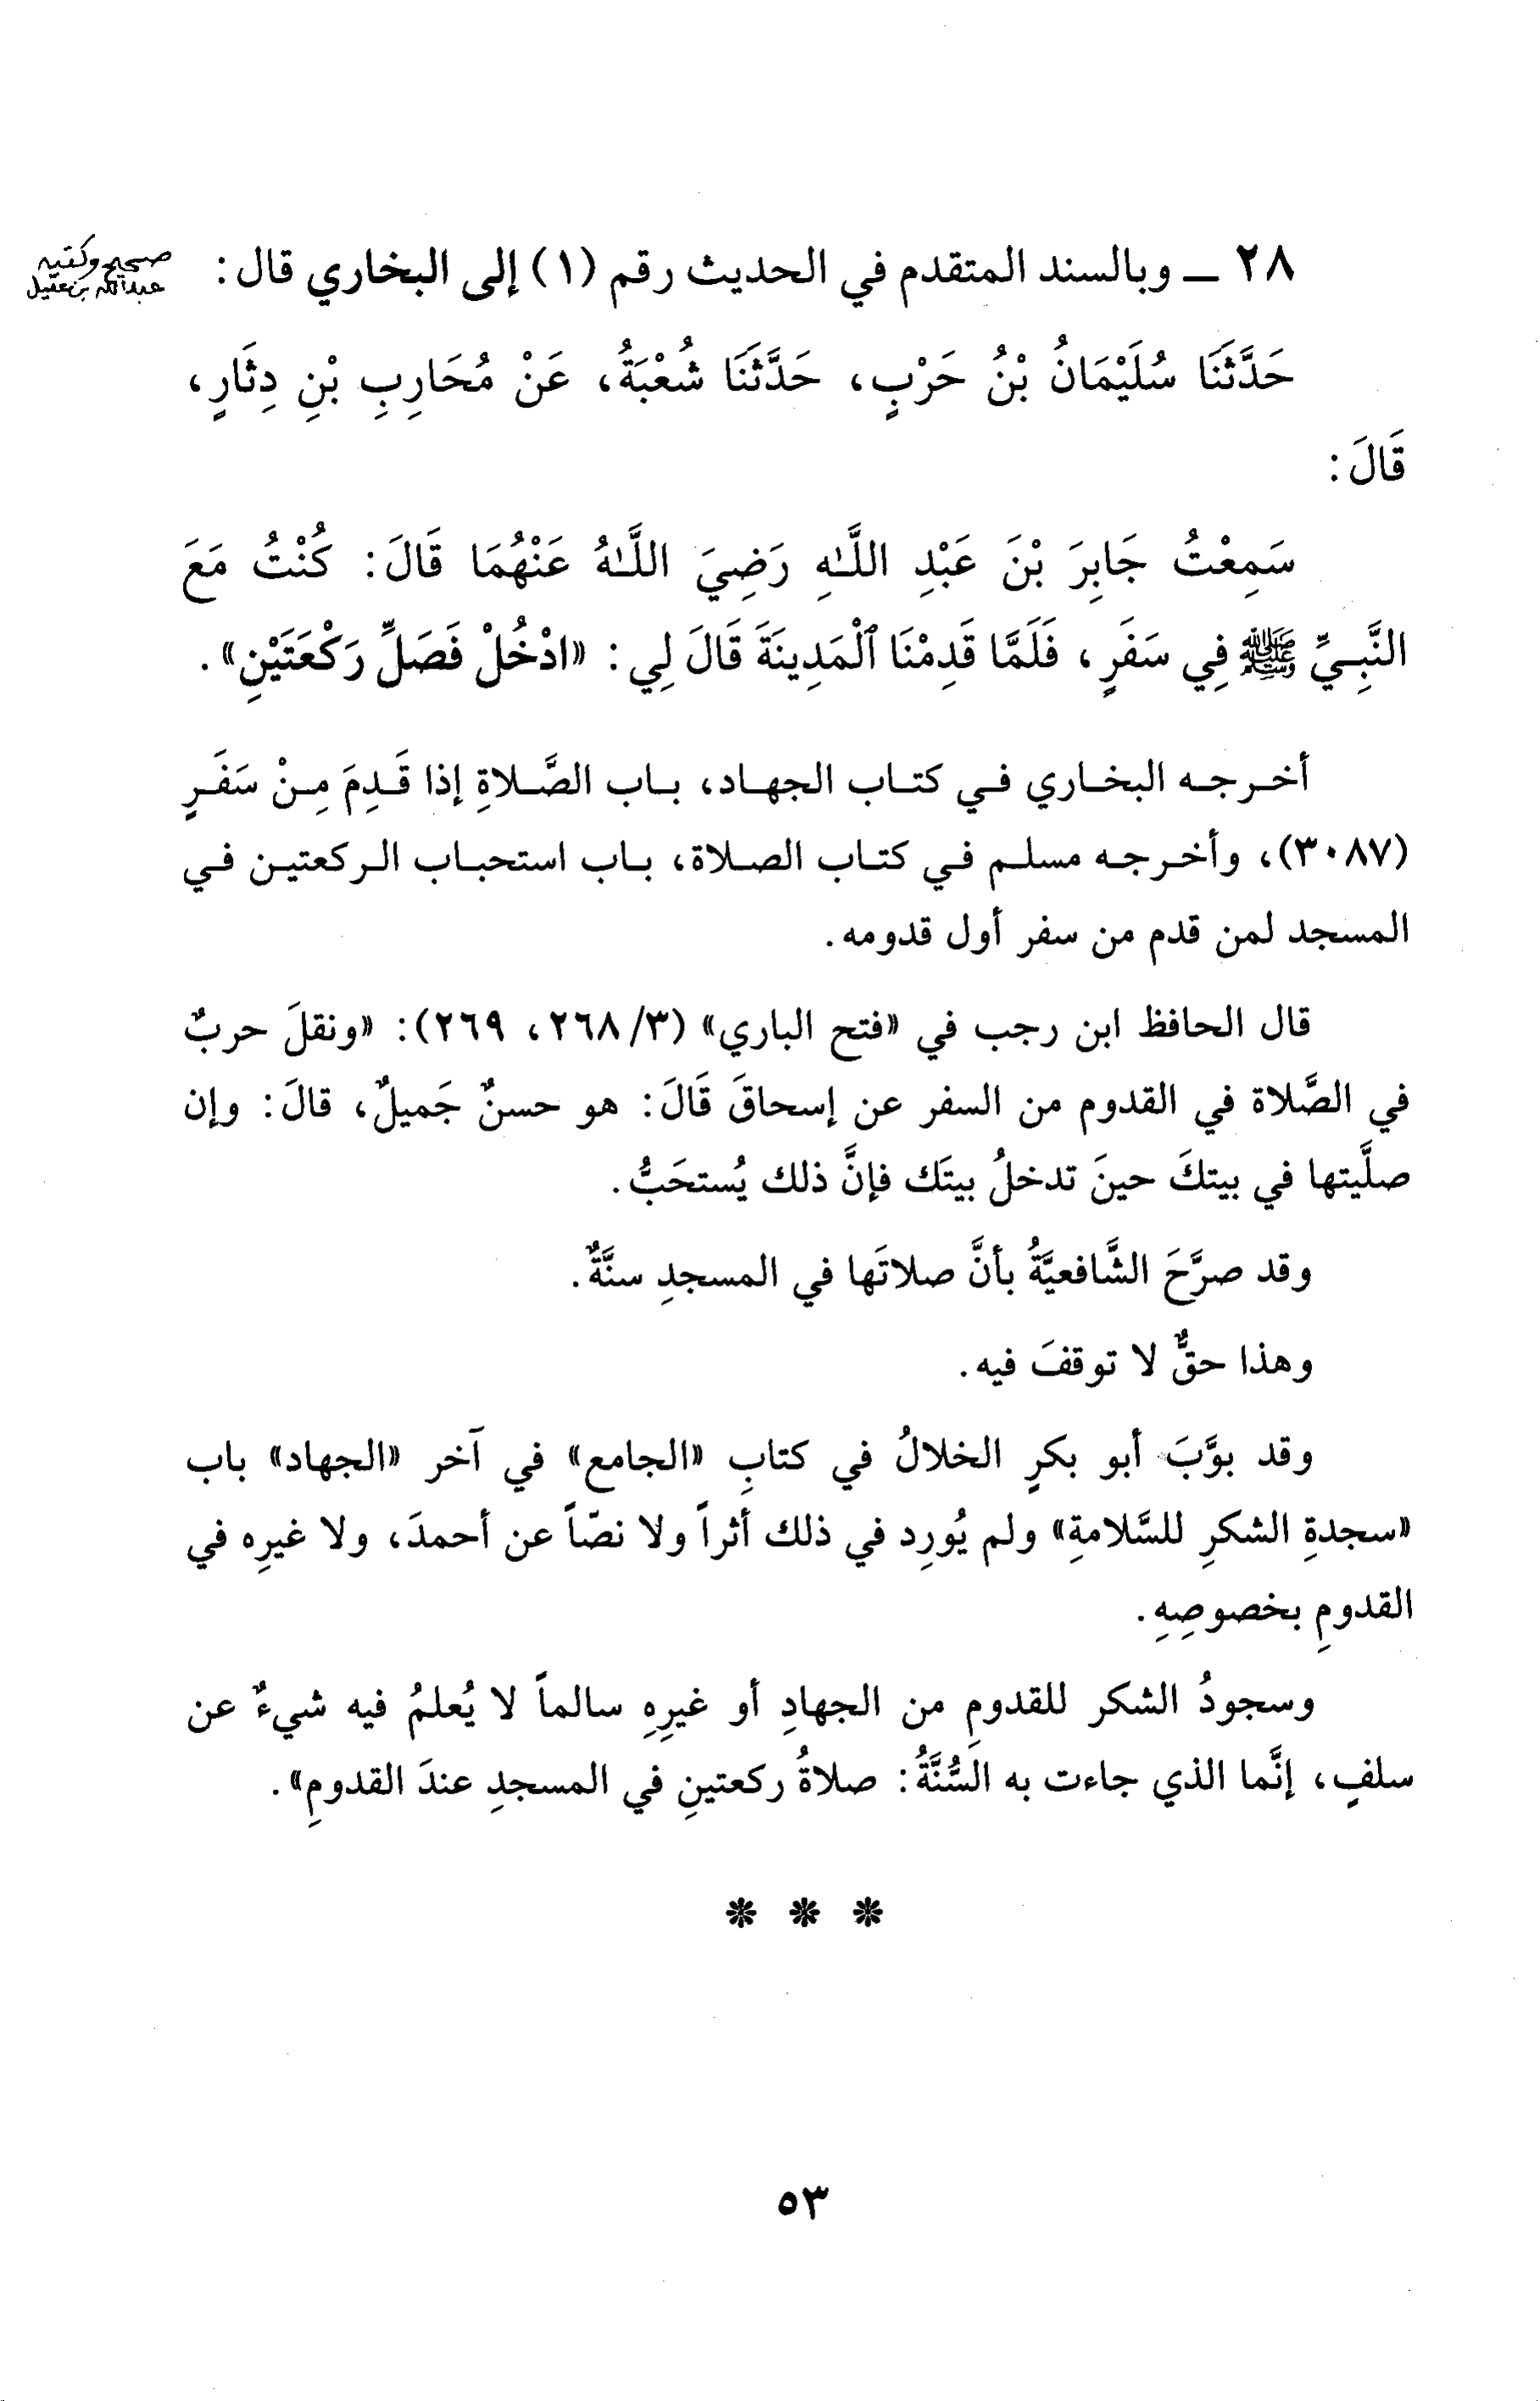 ٢٨ ـ وبالسند المتقدم في الحديث رقم (١) إلى البخاري قال:
صحيح وكتبه
عبدالله بن عقيل
حَدَّثَنَا سُلَيْمَانُ بْنُ حَرْبٍ، حَدَّثَنَا شُعْبَةُ، عَنْ مُحَارِبِ بْنِ دِثَارٍ،
قَالَ:
سَمِعْتُ جَابِرَ بْنَ عَبْدِ اللَّـٰهِ رَضِيَ اللَّـٰهُ عَنْهُمَا قَالَ: كُنْتُ مَعَ
النَّبِـيِّ ﷺ فِي سَفَرٍ، فَلَمَّا قَدِمْنَا ٱلْمَدِينَةَ قَالَ لِي: «ادْخُلْ فَصَلِّ رَكْعَتَيْنِ».
أخـرجـه البخـاري فـي كتـاب الجهـاد، بـاب الصَّـلاةِ إذا قَـدِمَ مِـنْ سَفَـرٍ
(٣٠٨٧)، وأخـرجـه مسلـم فـي كتـاب الصـلاة، بـاب استحبـاب الـركعتيـن فـي
المسجد لمن قدم من سفر أول قدومه.
قال الحافظ ابن رجب في «فتح الباري» (٣/ ٢٦٨، ٢٦٩): «ونقلَ حربٌ
في الصَّلاة في القدوم من السفر عن إسحاقَ قَالَ: هو حسنٌ جَميلٌ، قالَ: وإن
صلَّيتها في بيتكَ حينَ تدخلُ بيتَك فإنَّ ذلك يُستحَبُّ.
وقد صرَّحَ الشَّافعيَّةُ بأنَّ صلاتَها في المسجدِ سنَّةٌ.
وهذا حقٌّ لا توقفَ فيه.
وقد بوَّبَ أبو بكرٍ الخلالُ في كتابِ «الجامع» في آخر «الجهاد» باب
«سجدةِ الشكرِ للسَّلامةِ» ولم يُورِد في ذلك أثراً ولا نصّاً عن أحمدَ، ولا غيرِه في
القدومِ بخصوصِهِ.
وسجودُ الشكر للقدومِ من الجهادِ أو غيرِهِ سالماً لا يُعلمُ فيه شيءٌ عن
سلفٍ، إنَّما الذي جاءت به السُّنَّةُ: صلاةُ ركعتينِ في المسجدِ عندَ القدومِ».
* * *
٥٣